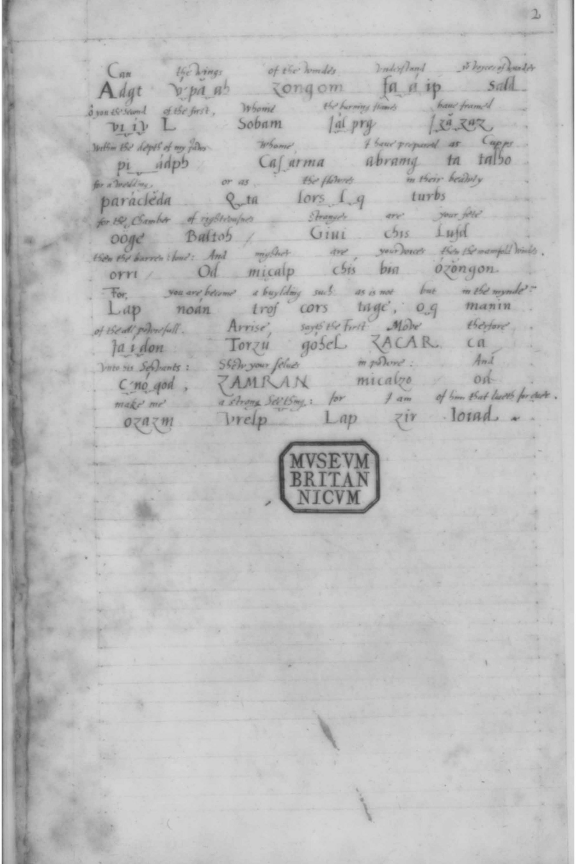 2
Can the wings of the windes understand yor voyces of wonder
Adgt v.pa_ah zongom fa_a_ip Sald
ô you the second of the first, Whome the burning flames have framed
vi_i_v L Sobam Ial_prg I_zâ_zaz
within the depth of my Iawes Whome I have prepared as Cupps
pi_âdph Cas_arma abramg ta talho
for a wedding, or as the flowres in their beawty
parácléda Q_ta lors_l_q turbs
for the Chamber of rightousnes Stronger are your fete
ooge Baltoh / Giui chis Lusd
then the barren stone: And mightier are your voices then the manifold windes.
orri / Od micalp chis bia ôzôngon.
For, you are become a buylding such as is not but in the mynde
Lap noán trof cors tage, o_q manin
of the all powrefull. Arrise, sayth the First Move therfore
Ia_i_don Torzú gohel ZACAR ca
Unto his Servants: Shew your selves in powre: And
C_nó_qod, ZAMRAN micalzo od
make me a strong Seething: for I am of him that liveth for ever.
ozazm vrelp Lap zir Ioiad.
MVSEVM
BRITAN
NICVM